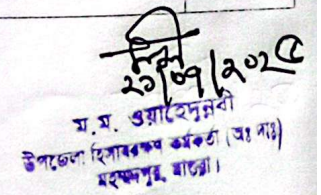 ২০/০৭/২০২৫
ম.ম. ওয়াহেদুন্নবী
উপজেলা হিসাবরক্ষণ কর্মকর্তা (অঃ দাঃ)
মহম্মদপুর, মাগুরা।